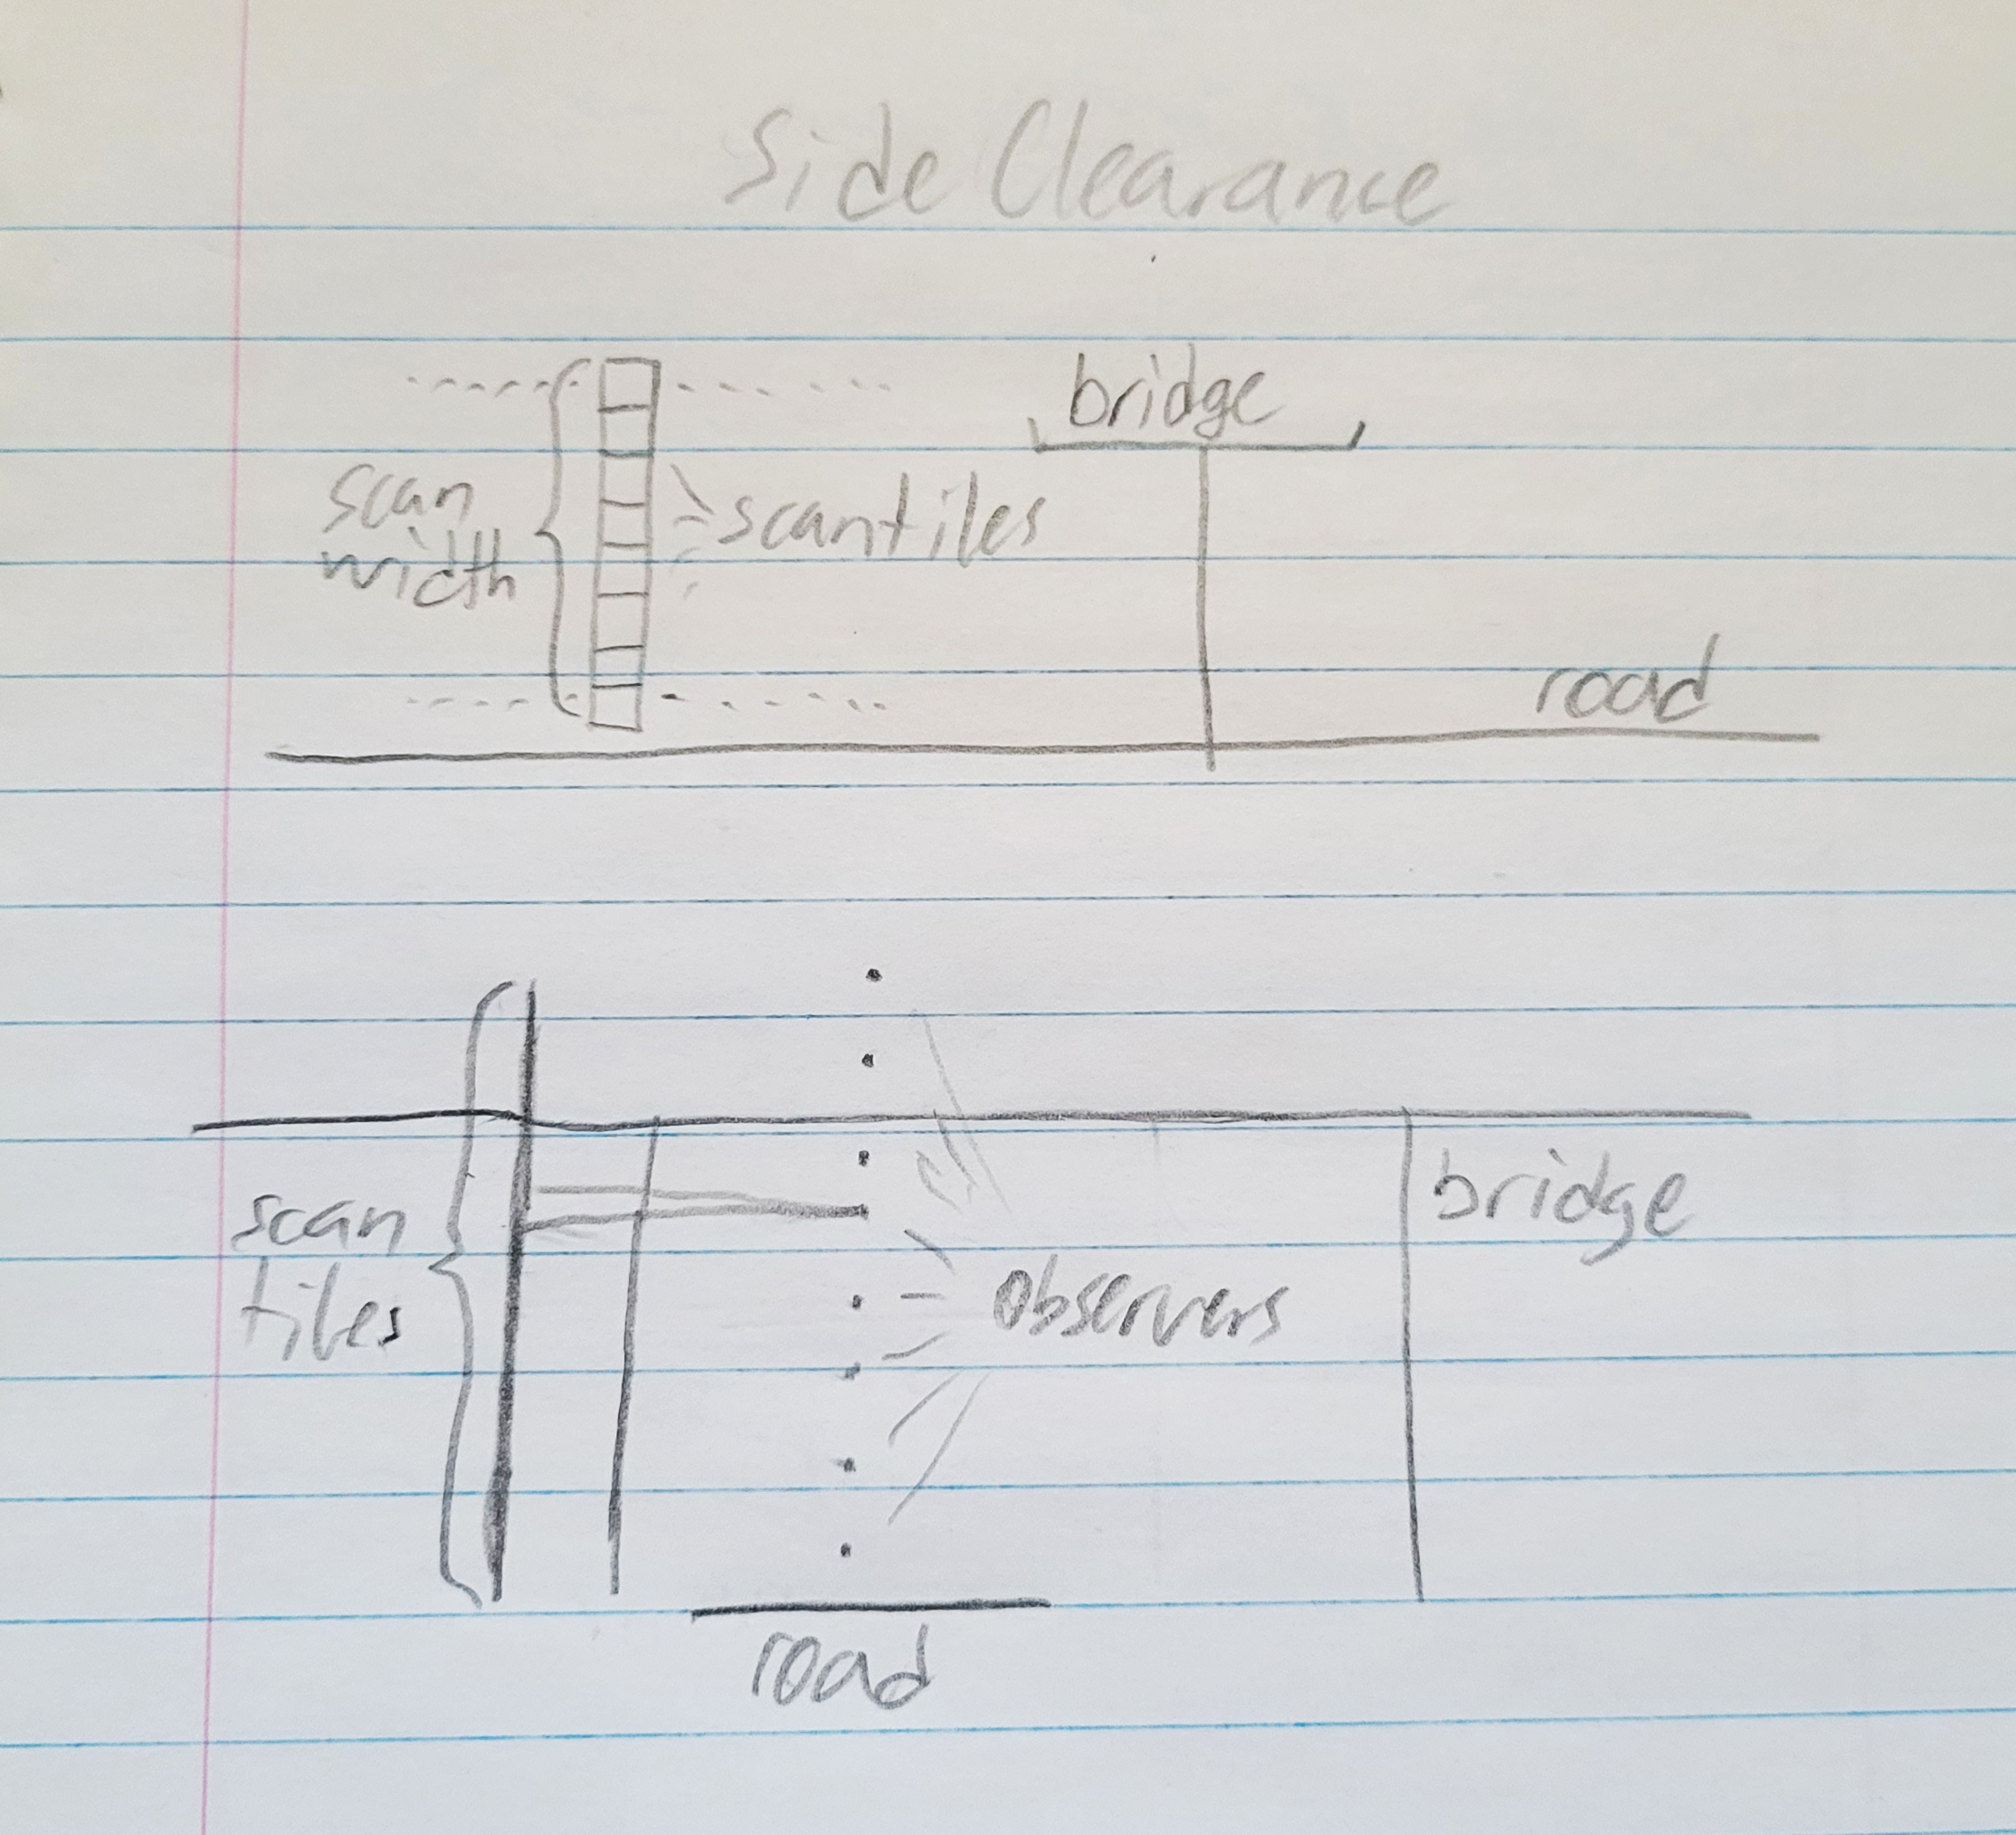 Side Clearance
bridge
scan
width
scantiles
road
scan
tiles
bridge
observers
road